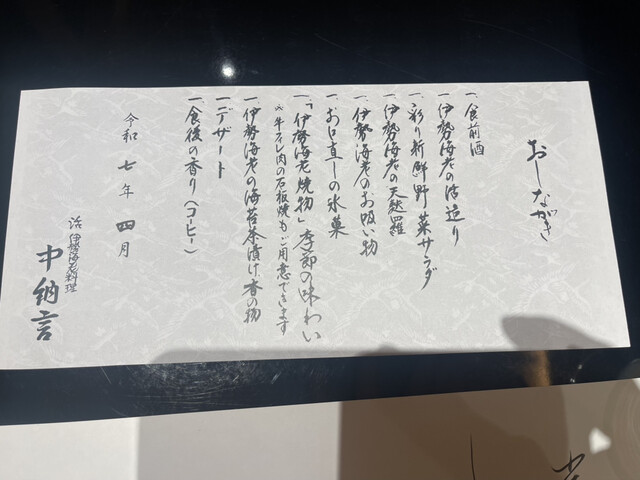 おしながき
一、食前酒
一、伊勢海老の活造り
一、彩り新鮮野菜サラダ
一、伊勢海老の天麩羅
一、伊勢海老のお吸い物
一、お口直しの氷菓
一、「伊勢海老焼物」季節の味わい
※牛ヒレ肉の石板焼もご用意できます
一、伊勢海老の海苔茶漬け 香の物
一、デザート
一、食後の香り(コーヒー)
令和 七年 四月
活伊勢海老料理
中納言